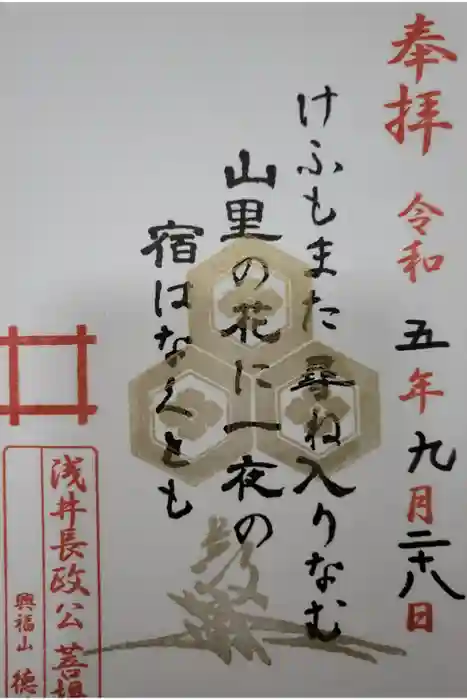 奉拝 令和五年九月二十八日
けふもまた 尋ね入りなむ
山里の花に一夜の
宿はなくとも
浅井長政公 菩提
興福山 徳